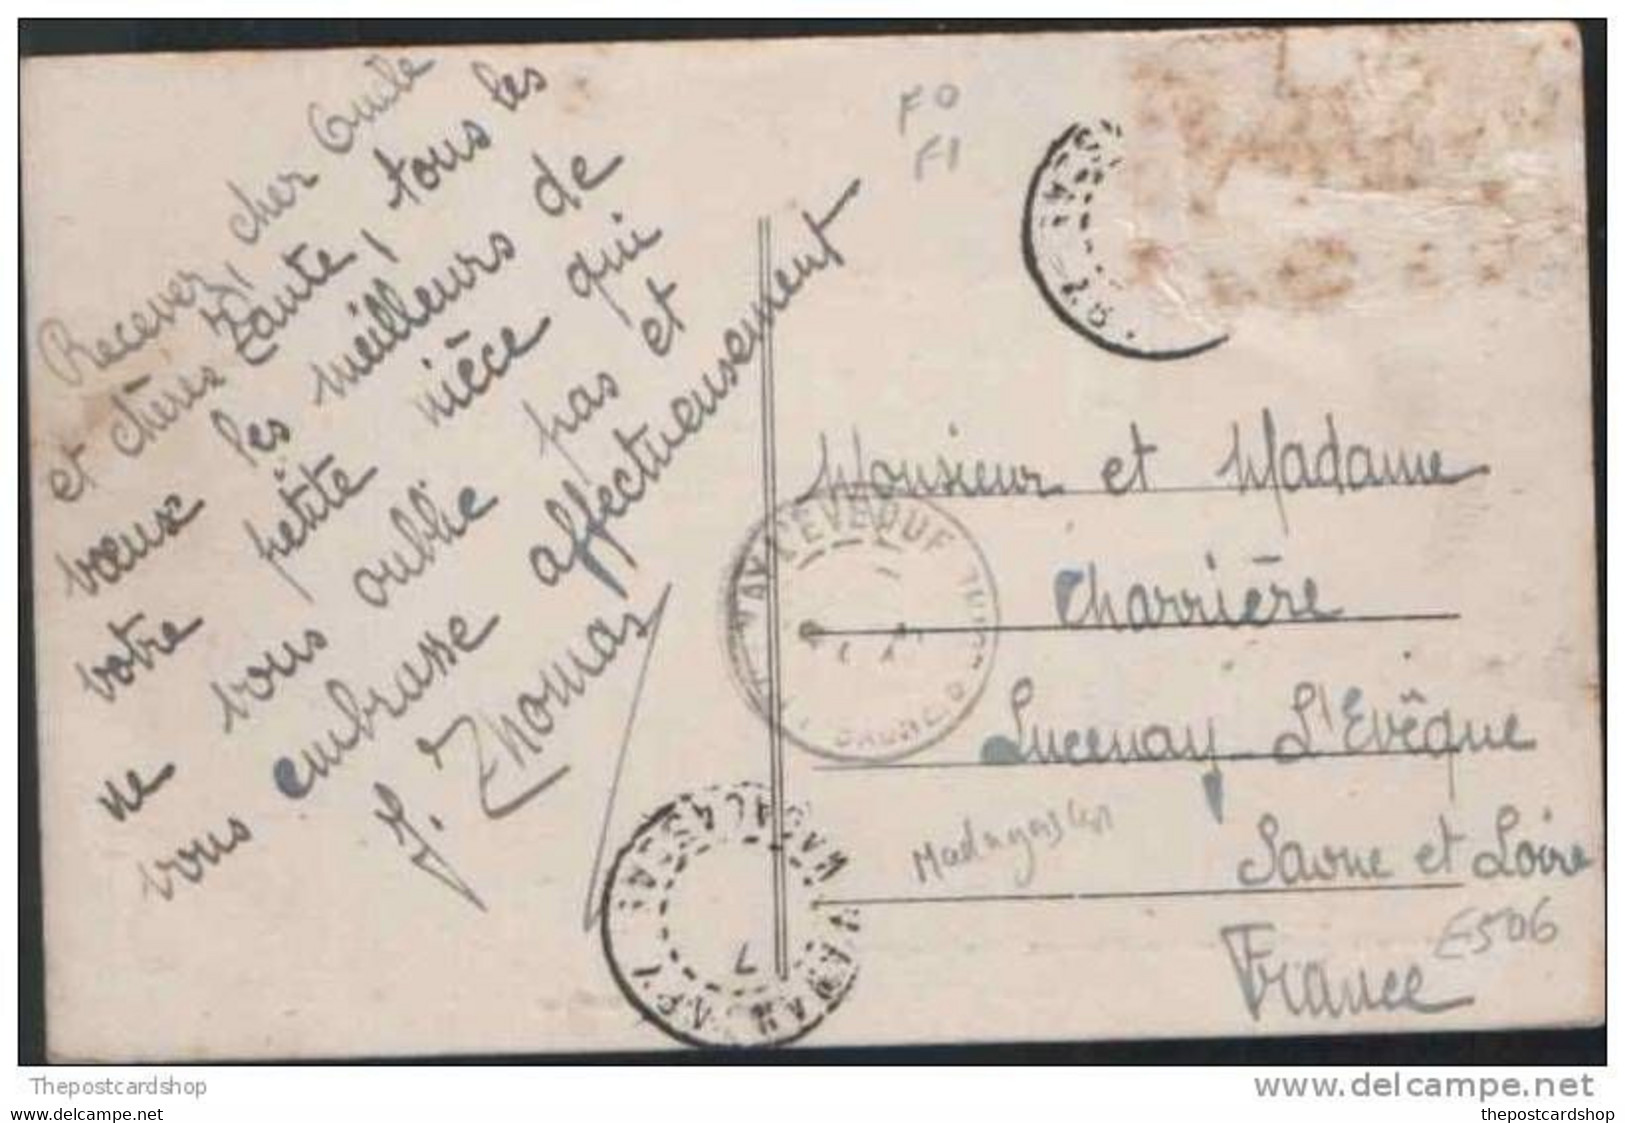 Recevez, cher Oncle
et chères Tante, tous les
voeux les meilleurs de
votre petite nièce qui
ne vous oublie pas et
vous embrasse affectueusement
J. Thomas
FO
F1
Monsieur et Madame
Charrière
Lucenay L'Evêque
Saone et Loire
France
Madagascar
E506
Thepostcardshop
www.delcampe.net
thepostcardshop
thepostcardshop